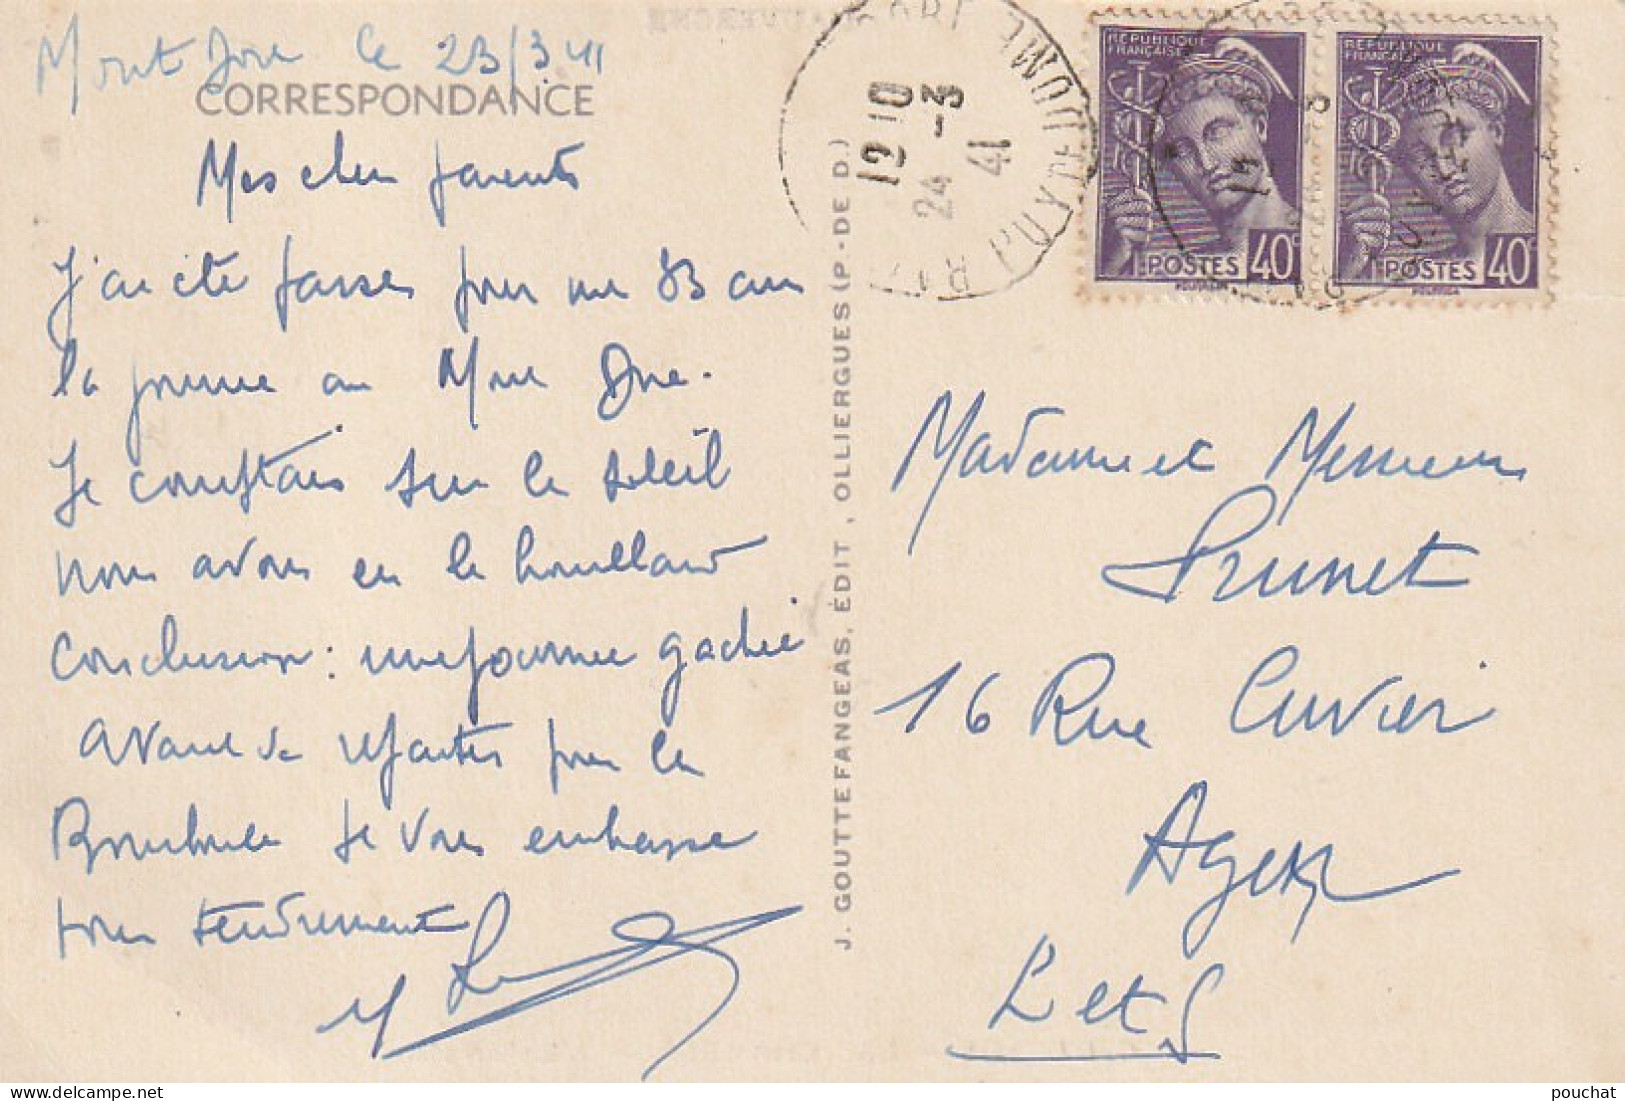 Mont Dore le 23/3 41
CORRESPONDANCE
Mes chers parents
J'ai été passer pour mes 33 ans
la journée au Mont Dore.
Je comptais sur le soleil
nous avons eu le brouillard
Conclusion : une journée gachée
avant de repartir pour la
Bourboule Je vous embrasse
tous tendrement
J. GOUTTEFANGEAS, ÉDIT., OLLIERGUES (P.-DE D.)
12 10
24 -3
41
PUY DE DOME
REPUBLIQUE
FRANÇAISE
POSTES 40c
REPUBLIQUE
FRANÇAISE
POSTES 40c
Madame et Messieurs
Prunet
16 Rue Cuvier
Agen
L et G
pouchat